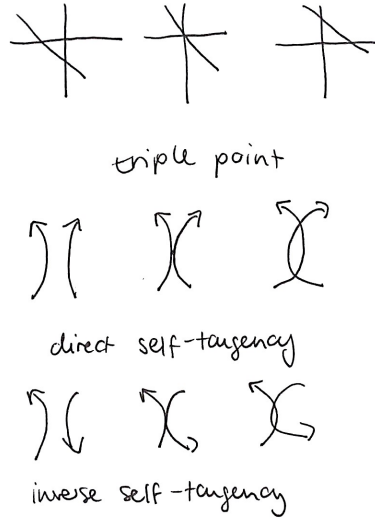 triple point
direct self-tangency
inverse self-tangency